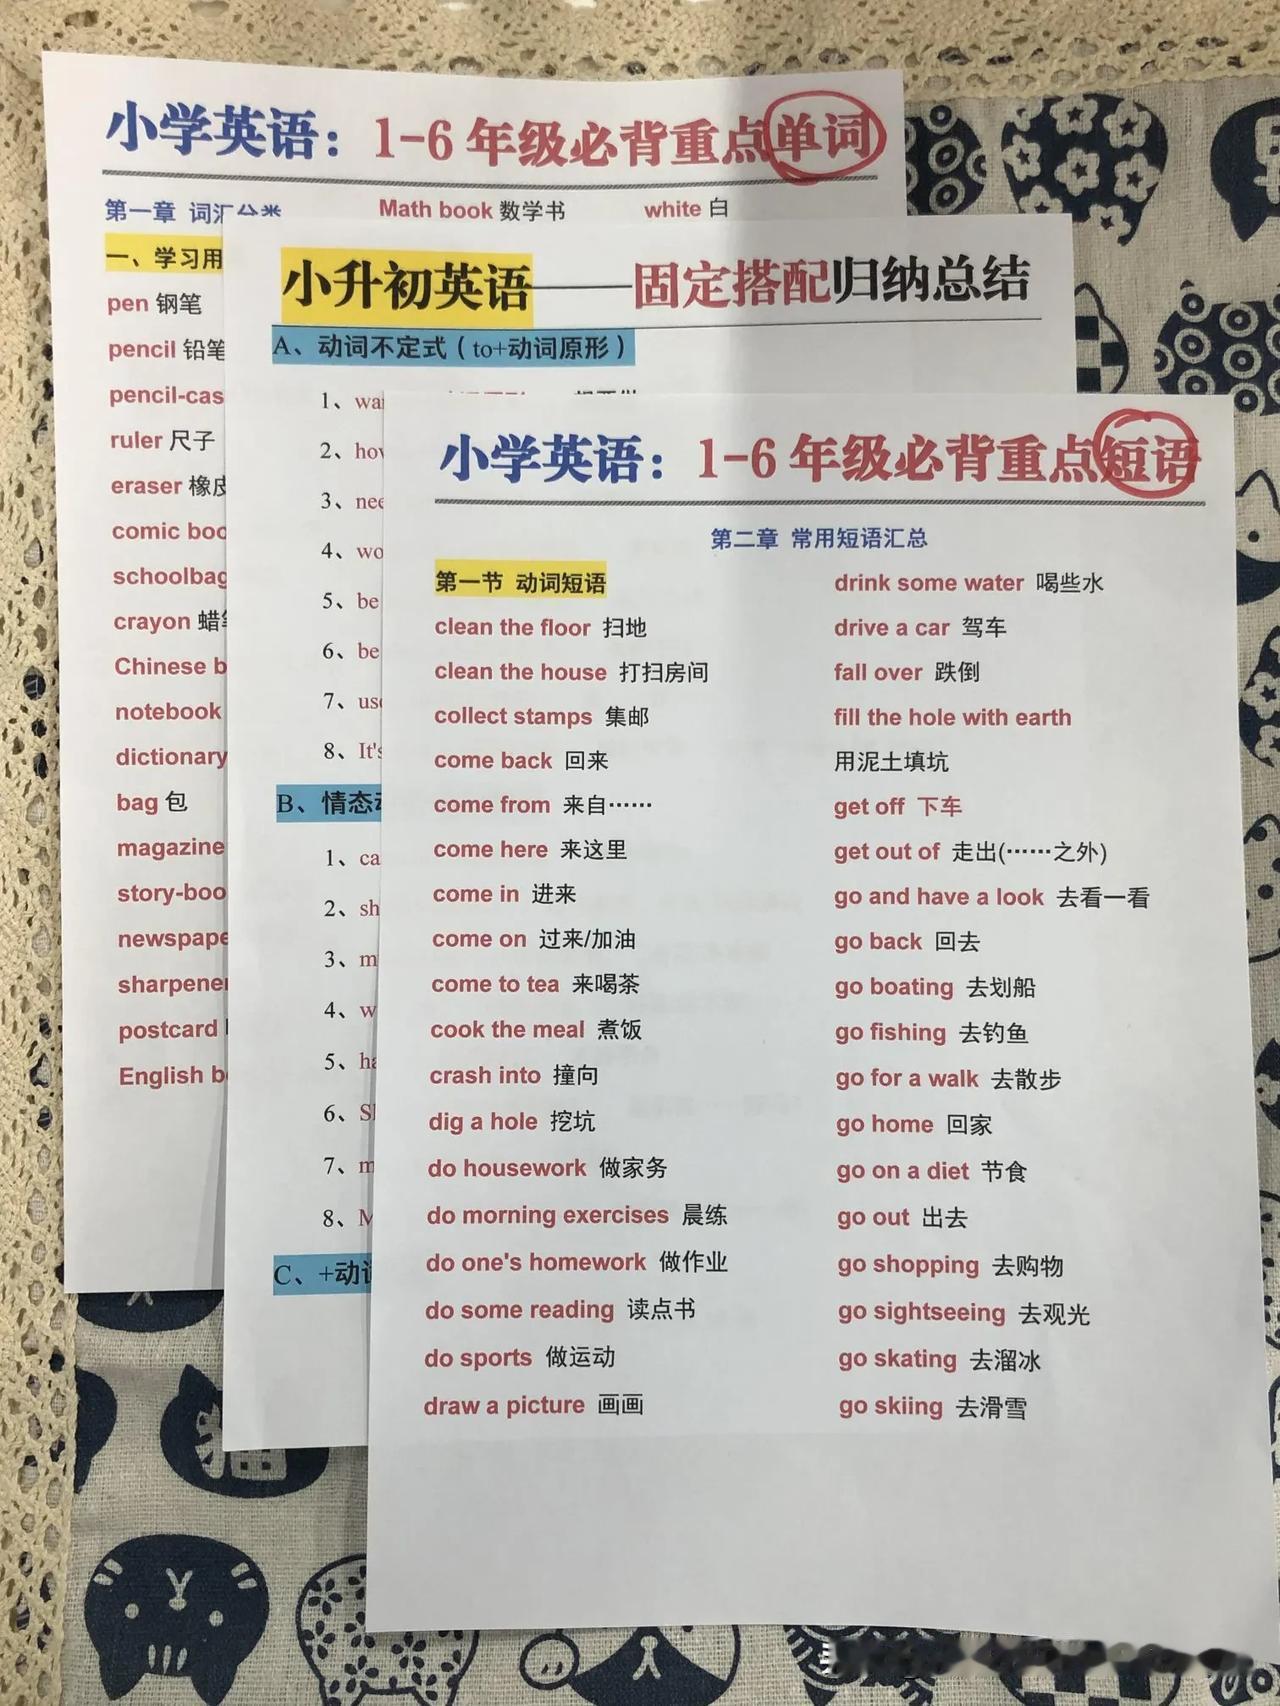 小学英语：1-6年级必背重点单词
第一章 词汇分类
一、学习用
pen 钢笔
pencil 铅笔
ruler 尺子
eraser 橡皮
schoolbag
crayon 蜡笔
Chinese
notebook
dictionary
bag 包
magazine
postcard
English
Math book 数学书
white 白
小升初英语——固定搭配归纳总结
A、动词不定式（to+动词原形）
1、
2、
3、
4、
5、be
6、be
7、
8、It's
B、情态
1、
2、
3、
4、
5、
6、
7、
8、
C、+动词
小学英语：1-6年级必背重点短语
第二章 常用短语汇总
第一节 动词短语
clean the floor 扫地
clean the house 打扫房间
collect stamps 集邮
come back 回来
come from 来自……
come here 来这里
come in 进来
come on 过来/加油
come to tea 来喝茶
cook the meal 煮饭
crash into 撞向
dig a hole 挖坑
do housework 做家务
do morning exercises 晨练
do one's homework 做作业
do some reading 读点书
do sports 做运动
draw a picture 画画
drink some water 喝些水
drive a car 驾车
fall over 跌倒
fill the hole with earth
用泥土填坑
get off 下车
get out of 走出(……之外)
go and have a look 去看一看
go back 回去
go boating 去划船
go fishing 去钓鱼
go for a walk 去散步
go home 回家
go on a diet 节食
go out 出去
go shopping 去购物
go sightseeing 去观光
go skating 去溜冰
go skiing 去滑雪